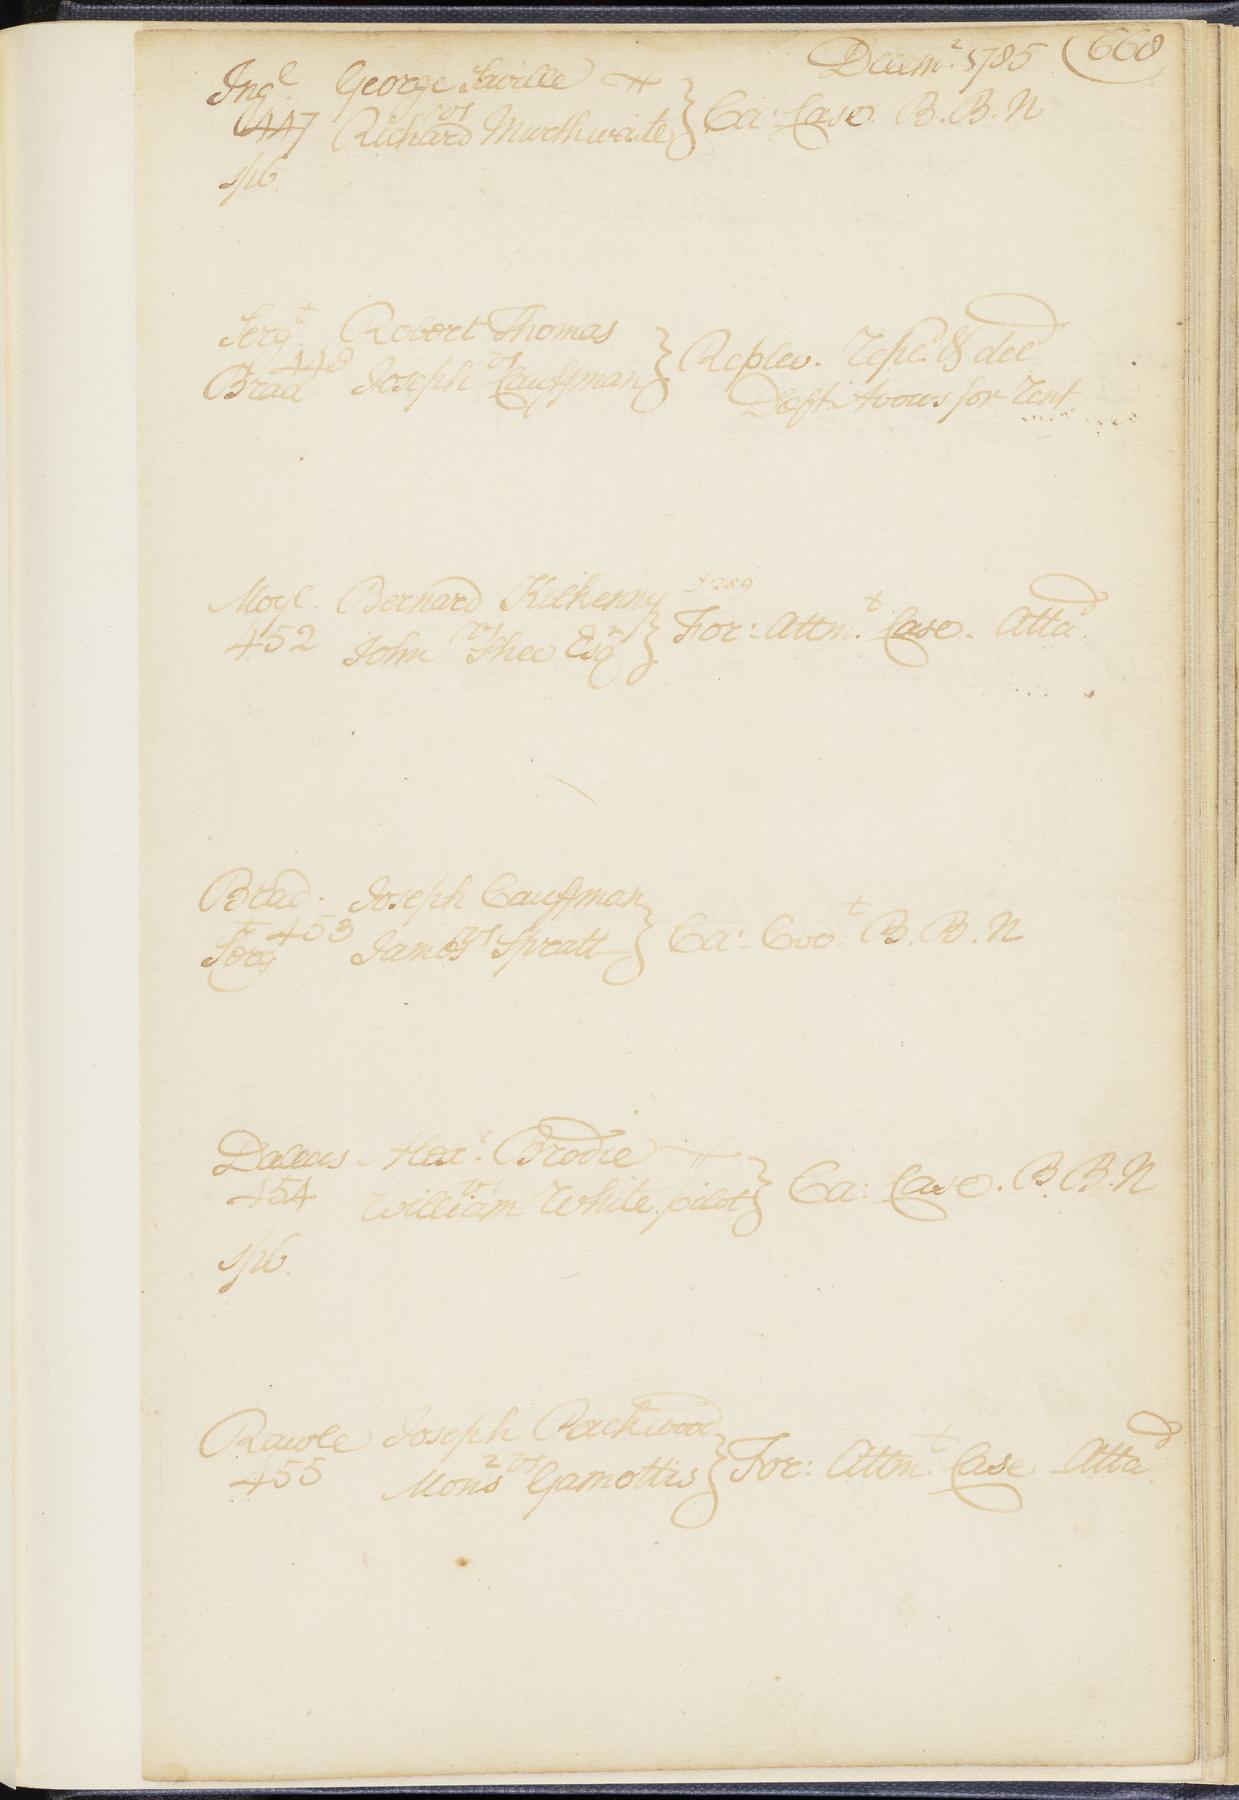 Decem.r 1785 (668
Ing.l George Saville
vs
447 Richard Murthwaite } Ca: Case. B.B.N
1/16.
Serg.t Robert Thomas
448 vs } Replev. Repl.d & del.d
Brad Joseph Cauffman
Deft. Avows for Rent
Moyl. Bernard Kilkenny
452 vs } For: Attm.t Case. Atta.d
John Shee Esq.r
Brad. Joseph Cauffman
453 vs } Ca: Cov.t B.B.N
Serg.t James Spratt
Dallas Alex.r Brodie
454 vs } Ca: Case. B.B.N
William White pilot
1/16.
Rawle Joseph Packwood
455 vs } For: Attm.t Case Atta.d
Mons.r Gamottis